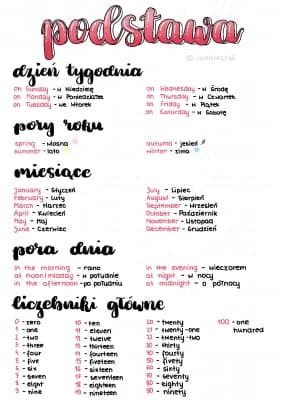 podstawa
dzień tygodnia
on Sunday - w Niedzielę
on Monday - w Poniedziałek
on Tuesday - we Wtorek
on Wednesday - w Środę
on Thursday - w Czwartek
on Friday - w Piątek
on Saturday - w Sobotę
pory roku
spring - wiosna
summer - lato
autumn - jesień
winter - zima
miesiące
January - Styczeń
February - Luty
March - Marzec
April - Kwiecień
May - Maj
June - Czerwiec
July - Lipiec
August - Sierpień
September - Wrzesień
October - Październik
November - Listopad
December - Grudzień
pora dnia
in the morning - rano
at noon/midday - w południe
in the afternoon - po południu
in the evening - wieczorem
at night - w nocy
at midnight - o północy
liczebniki główne
0 - zero
1 - one
2 - two
3 - three
4 - four
5 - five
6 - six
7 - seven
8 - eight
9 - nine
10 - ten
11 - eleven
12 - twelve
13 - thirteen
14 - fourteen
15 - fifteen
16 - sixteen
17 - seventeen
18 - eighteen
19 - nineteen
20 - twenty
21 - twenty-one
22 - twenty-two
30 - thirty
40 - fourty
50 - fivety
60 - sixty
70 - seventy
80 - eighty
90 - ninety
100 - one
hundred